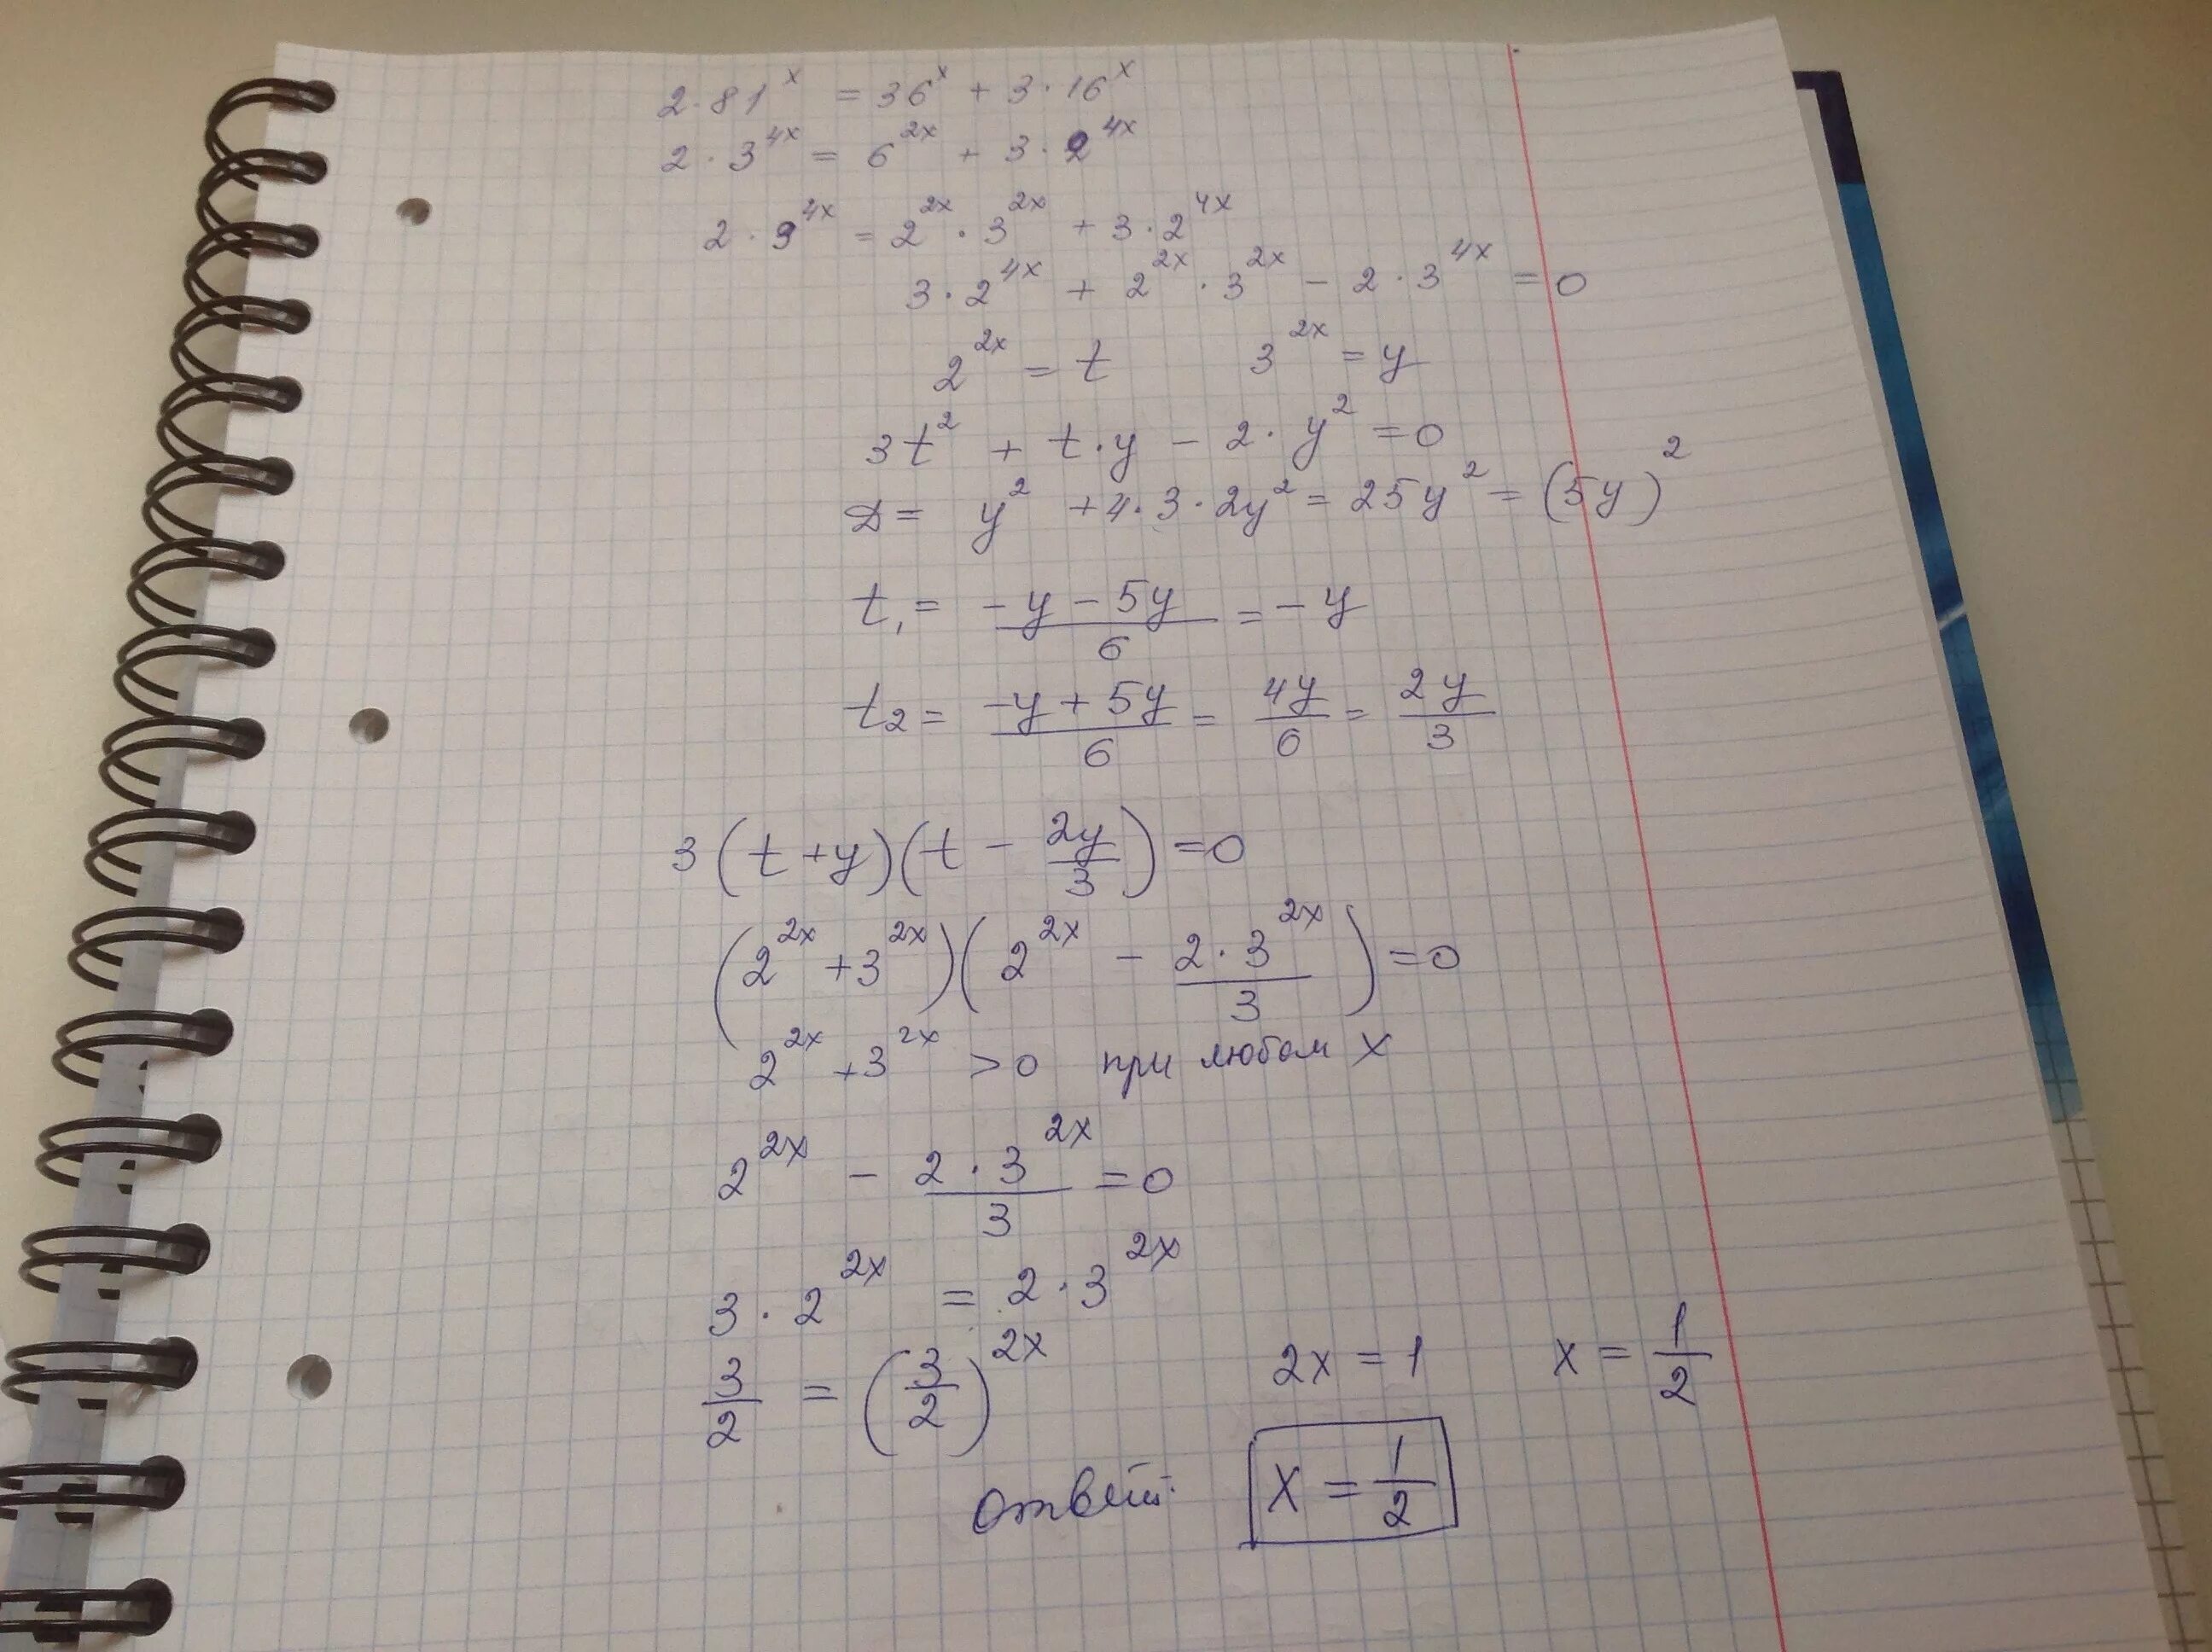 2·81^x = 36^x + 3·16^x
2·3^{4x} = 6^{2x} + 3·2^{4x}
2·9^{4x} = 2^{2x}·3^{2x} + 3·2^{4x}
3·2^{4x} + 2^{2x}·3^{2x} - 2·3^{4x} = 0
2^{2x} = t 3^{2x} = y
3t^2 + t·y - 2·y^2 = 0
D = y^2 + 4·3·2y^2 = 25y^2 = (5y)^2
t_1 = \frac{-y-5y}{6} = -y
t_2 = \frac{-y+5y}{6} = \frac{4y}{6} = \frac{2y}{3}
3(t+y)(t - \frac{2y}{3}) = 0
(2^{2x} + 3^{2x})(2^{2x} - \frac{2·3^{2x}}{3}) = 0
2^{2x} + 3^{2x} > 0 при любом x
2^{2x} - \frac{2·3^{2x}}{3} = 0
3·2^{2x} = 2·3^{2x}
\frac{3}{2} = (\frac{3}{2})^{2x} 2x = 1 x = \frac{1}{2}
ответ: x = \frac{1}{2}